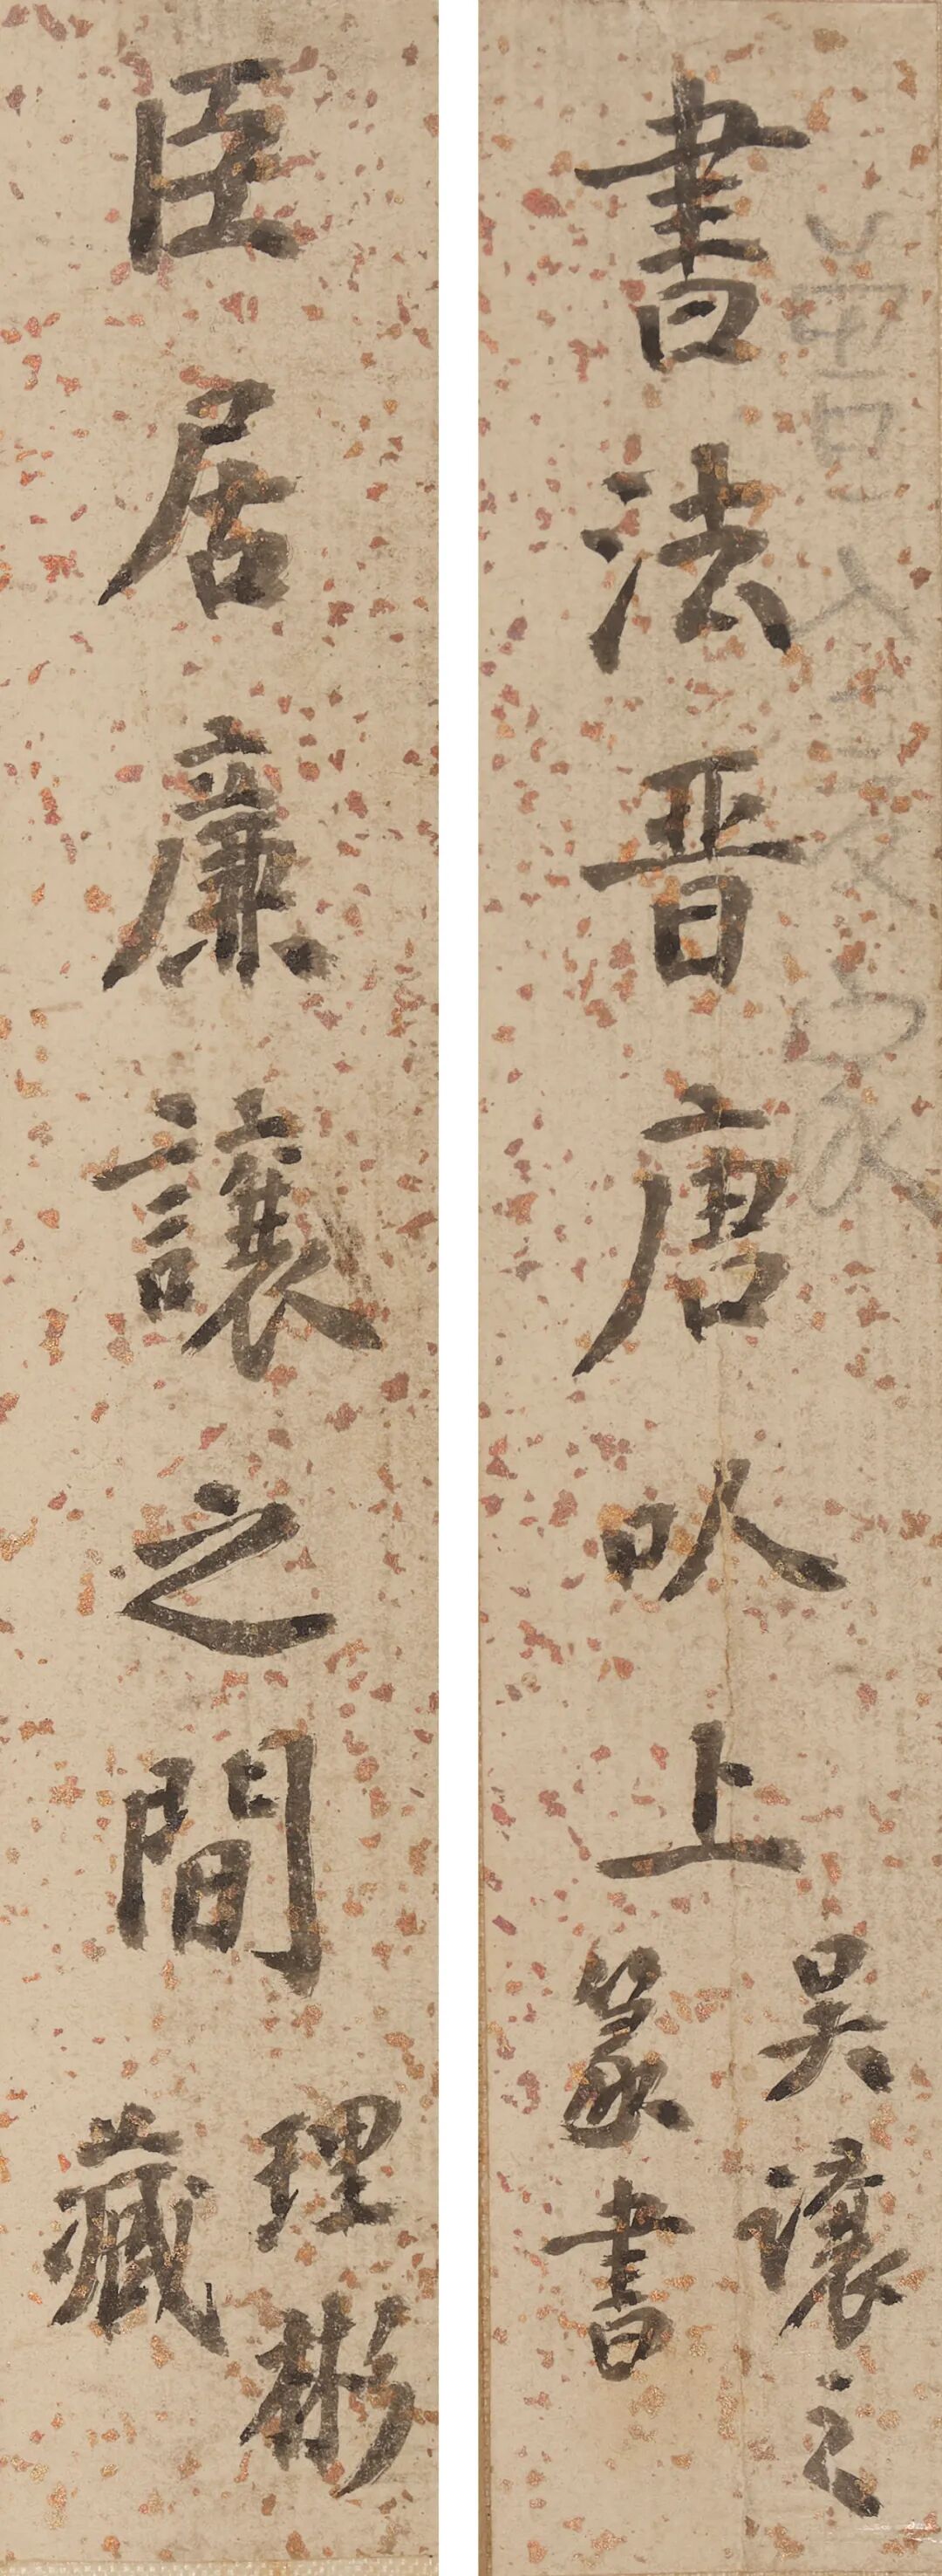 書法晉唐㕥上
吳讓之
篆書
臣居廉讓之間
理彬
藏